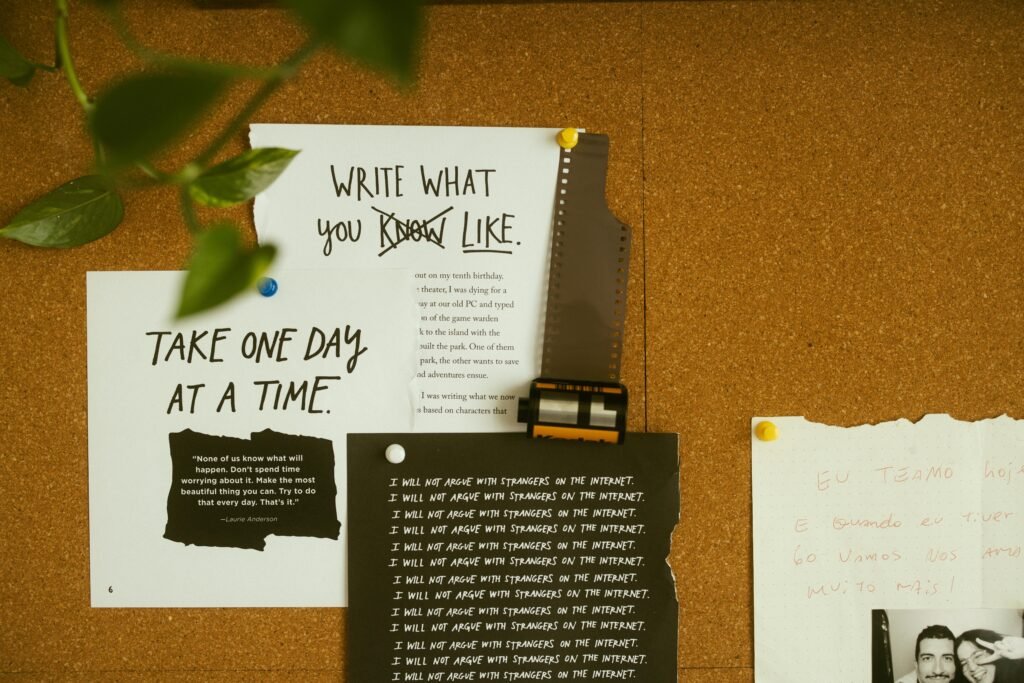 WRITE WHAT
YOU KNOW LIKE.
out on my tenth birthday.
theater, I was dying for a
ay at our old PC and typed
on of the game warden
k to the island with the
built the park. One of them
park, the other wants to save
nd adventures ensue.
I was writing what we now
s based on characters that
TAKE ONE DAY
AT A TIME.
“None of us know what will
happen. Don’t spend time
worrying about it. Make the most
beautiful thing you can. Try to do
that every day. That’s it.”
—Laurie Anderson
6
Kodak
I WILL NOT ARGUE WITH STRANGERS ON THE INTERNET.
I WILL NOT ARGUE WITH STRANGERS ON THE INTERNET.
I WILL NOT ARGUE WITH STRANGERS ON THE INTERNET.
I WILL NOT ARGUE WITH STRANGERS ON THE INTERNET.
I WILL NOT ARGUE WITH STRANGERS ON THE INTERNET.
I WILL NOT ARGUE WITH STRANGERS ON THE INTERNET.
I WILL NOT ARGUE WITH STRANGERS ON THE INTERNET.
I WILL NOT ARGUE WITH STRANGERS ON THE INTERNET.
I WILL NOT ARGUE WITH STRANGERS ON THE INTERNET.
I WILL NOT ARGUE WITH STRANGERS ON THE INTERNET.
I WILL NOT ARGUE WITH STRANGERS ON THE INTERNET.
I WILL NOT ARGUE WITH STRANGERS ON THE INTERNET.
I WILL NOT ARGUE WITH STRANGERS ON THE INTERNET.
EU TEAMO hoje
E QUANDO EU TIVER
60 VAMOS NOS AMA
MUITO MAIS!